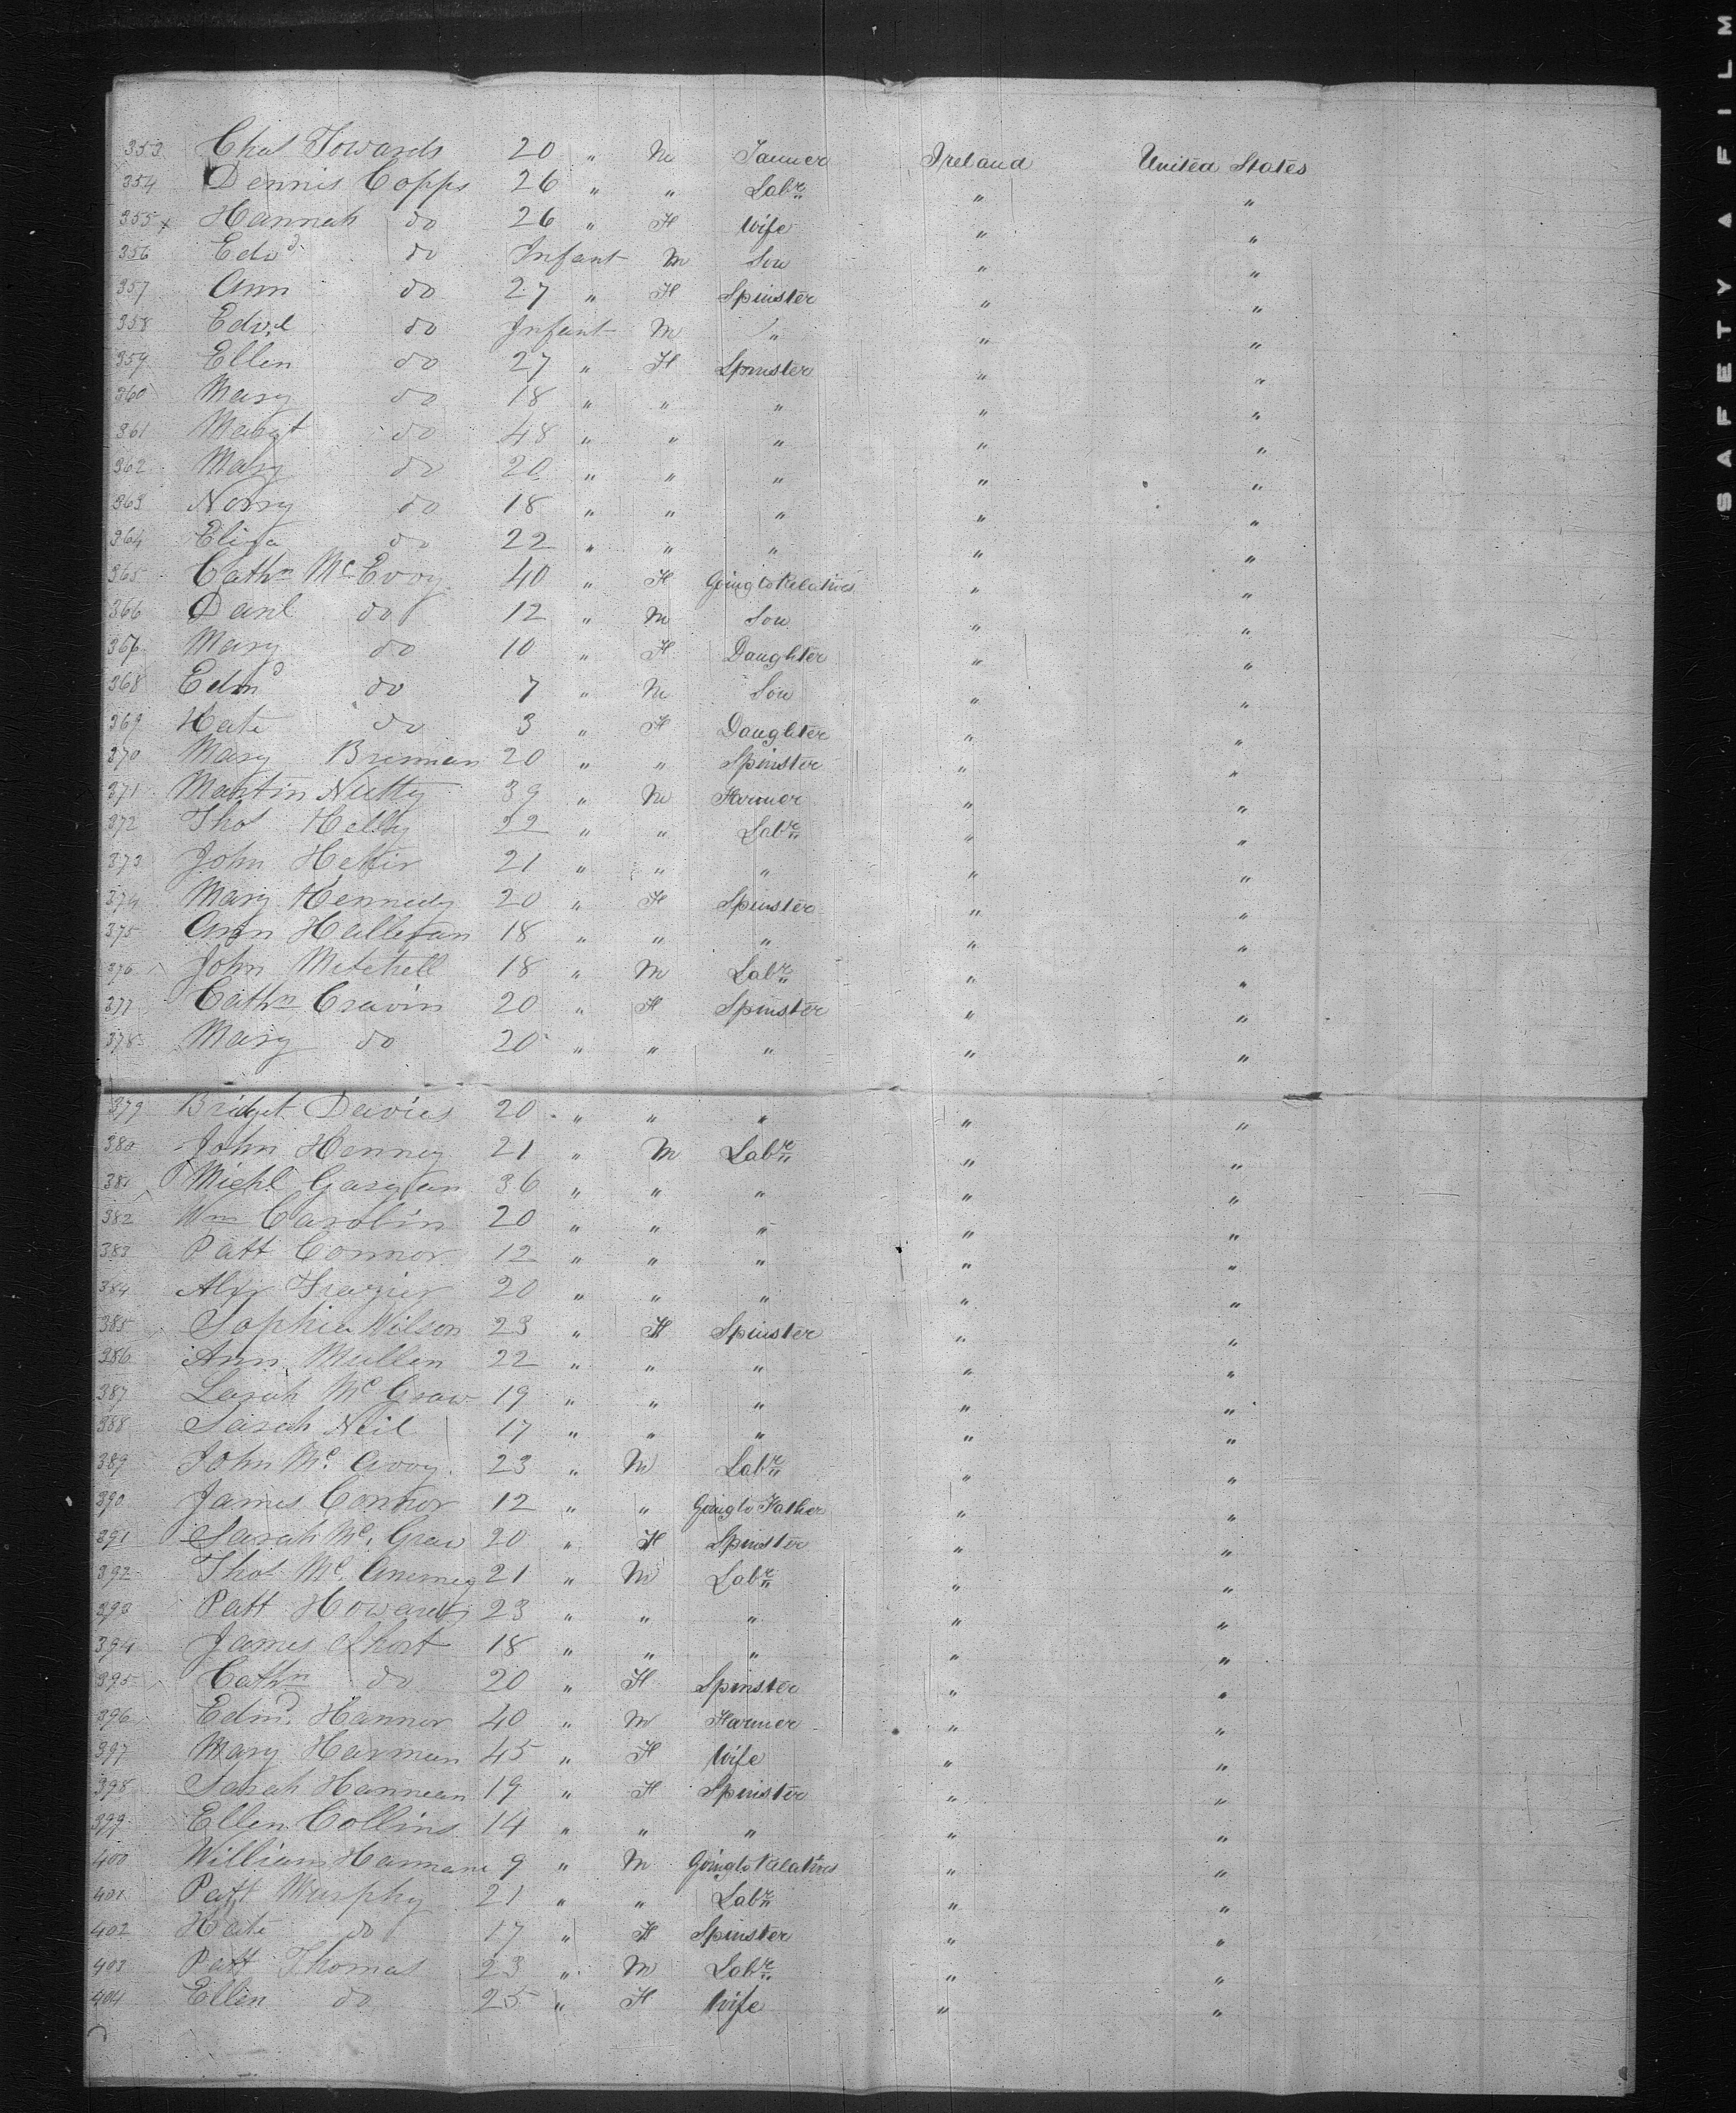 353 Chas Towards 20 " M Tanner Ireland United States
354 Dennis Copps 26 " " Labr " "
355 x Hannah do 26 " F Wife " "
356 Edwd do Infant M Son " "
357 Ann do 27 " F Spinster " "
358 Edwd do Infant M " " "
359 Ellen do 27 " F Spinster " "
360 Mary do 18 " " " " "
361 Margt do 48 " " " " "
362 Mary do 20 " " " " "
363 Norry do 18 " " " " "
364 Eliza do 22 " " " " "
365 Cathn McEvoy 40 " F Going to Relatives " "
366 Danl do 12 " M Son " "
367 Mary do 10 " F Daughter " "
368 Edmd do 7 " M Son " "
369 Kate do 3 " F Daughter " "
370 Mary Brennan 20 " " Spinster " "
371 Martin Nutty 39 " M Farmer " "
372 Thos Kelly 22 " " Labr " "
373 John 21 " " " " "
374 Mary Kennedy 20 " F Spinster " "
375 Ann 18 " " " " "
376 John Mitchell 18 " M Labr " "
377 Cathn Cravin 20 " F Spinster " "
378 Mary do 20 " " " " "
379 Bridget Davies 20 " " " " "
380 John Kenney 21 " M Labr " "
381 Michl 36 " " " " "
382 Wm Carolin 20 " " " " "
383 Patt Connor 12 " " " " "
384 Alex Frazier 20 " " " " "
385 Sophia Wilson 23 " F Spinster " "
386 Ann Mullen 22 " " " " "
387 Sarah McGraw 19 " " " " "
388 Sarah Neil 17 " " " " "
389 John McAvoy 23 " M Labr " "
390 James Connor 12 " " Going to Father " "
391 Sarah McGraw 20 " F Spinster " "
392 Thos 21 " M Labr " "
393 Patt Howard 23 " " " " "
394 James Short 18 " " " " "
395 Cathn do 20 " F Spinster " "
396 Edmd Hannon 40 " M Farmer " "
397 Mary Harman 45 " F Wife " "
398 Sarah Hannean 19 " F Spinster " "
399 Ellen Collins 14 " " " " "
400 William 9 " M Going to Relatives " "
401 Patt Murphy 21 " " Labr " "
402 Kate do 17 " F Spinster " "
403 Patt Thomas 23 " M Labr " "
404 Ellen do 25 " F Wife " "
SAFETY A FILM